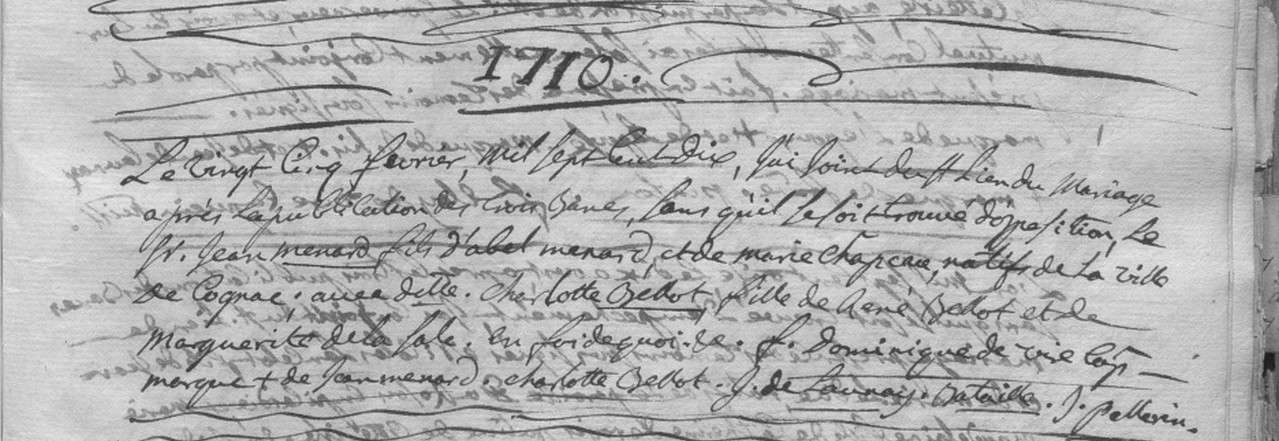 1710.
Le vingt Cinq fevrier, mil sept Cent dix, J'ai Joint du st Lien du Mariage
aprés La publication des trois Banes, sans qu'il se soit trouvé d'opposition, Le
Sr. Jean menard fils d'abel menard, et de marie Chapeau, natifs de La ville
de Cognac, avec dlle. Charlotte Bellot, fille de René Bellot et de
Marguerite de la Sale. En foi de quoi. f. Dominique de
marque + de Jean menard. Charlotte Bellot. J. de Launay. Bataille. J. Pellerin.